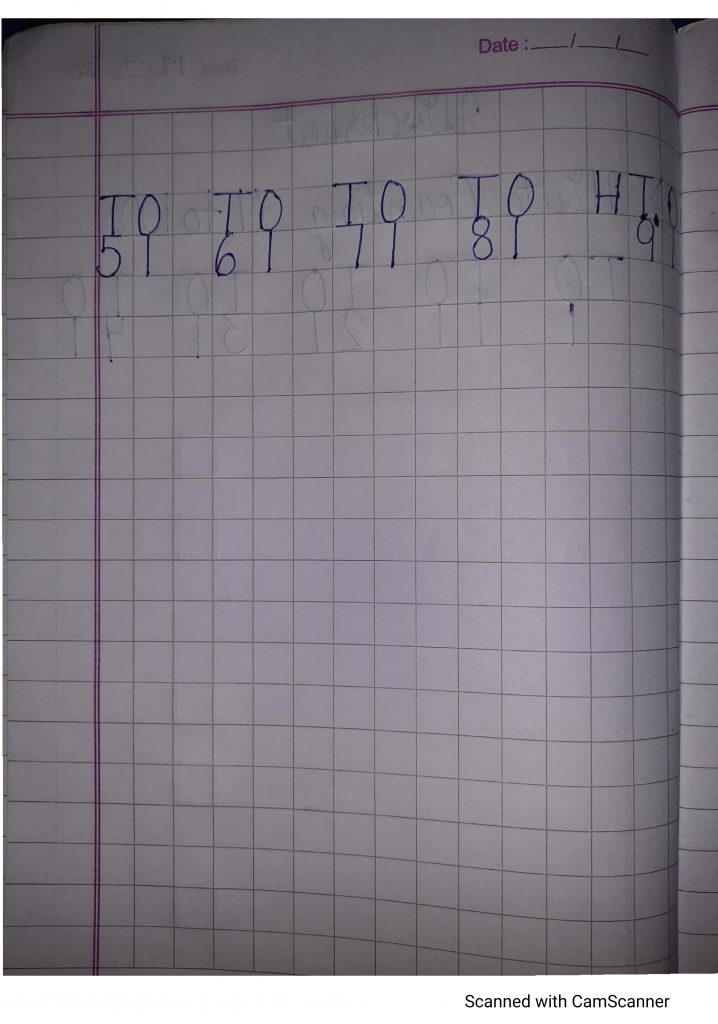 Date : __/__/__
T O T O T O T O H T O
5 1 6 1 7 1 8 1 9 1
Scanned with CamScanner